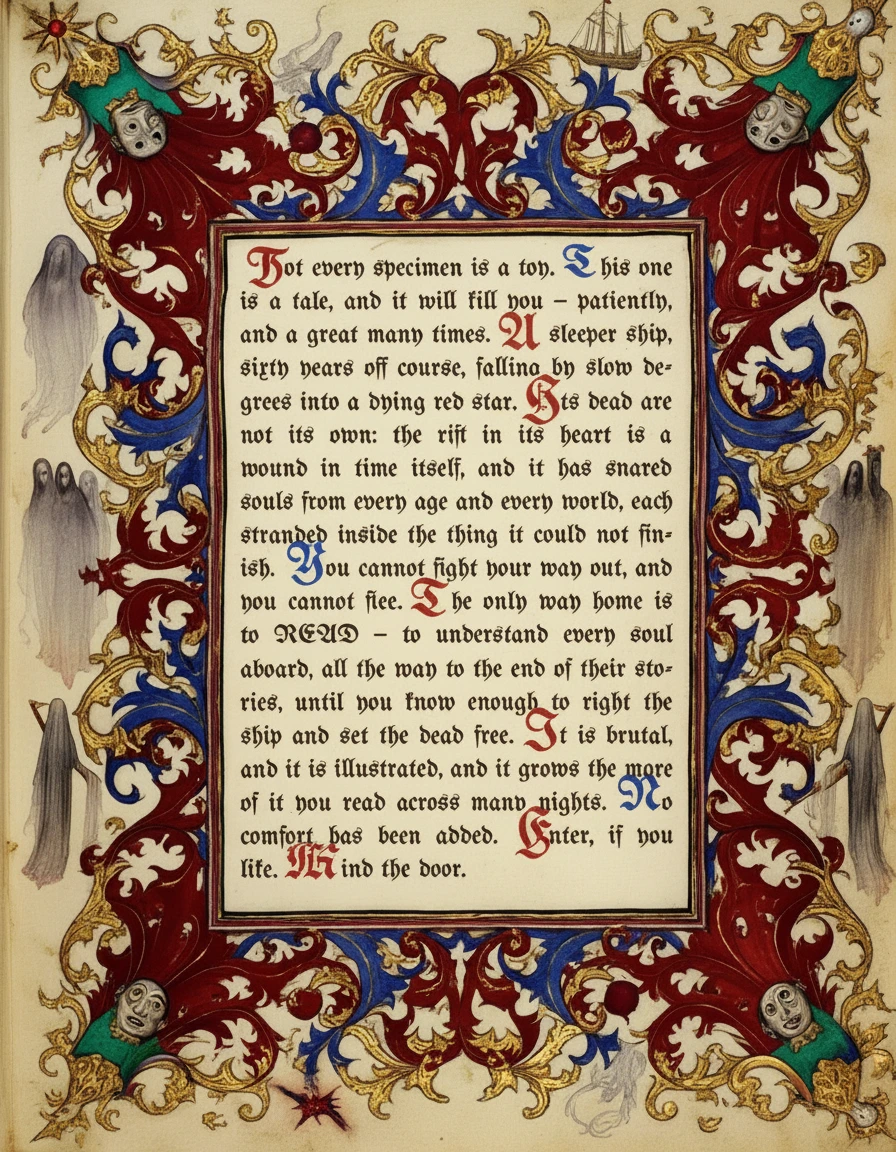 Not every specimen is a toy. This one
is a tale, and it will kill you – patiently,
and a great many times. A sleeper ship,
sixty years off course, falling by slow de-
grees into a dying red star. Its dead are
not its own: the rift in its heart is a
wound in time itself, and it has snared
souls from every age and every world, each
stranded inside the thing it could not fin-
ish. You cannot fight your way out, and
you cannot flee. The only way home is
to READ – to understand every soul
aboard, all the way to the end of their sto-
ries, until you know enough to right the
ship and set the dead free. It is brutal,
and it is illustrated, and it grows the more
of it you read across many nights. No
comfort has been added. Enter, if you
like. Mind the door.